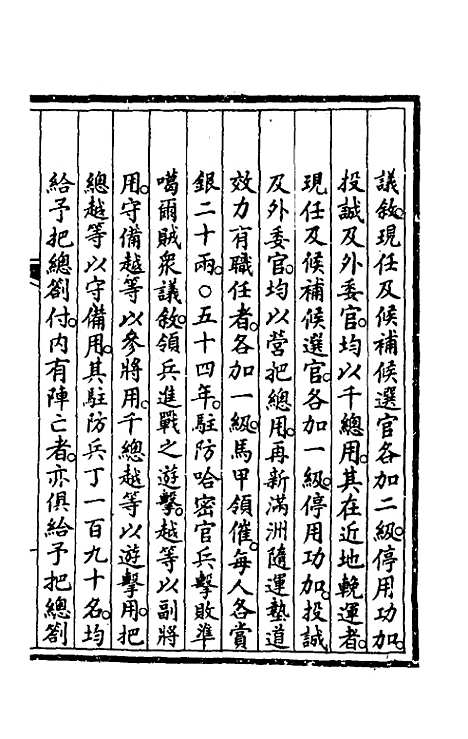 議敘。現任及候補候選官各加二級。停用功加。
投誠及外委官。均以千總用。其在近地輓運者。
現任及候補候選官。各加一級。停用功加。投誠
及外委官。均以營把總用。再新滿洲隨運墊道
效力有職任者。各加一級。馬甲領催。每人各賞
銀二十兩。○五十四年。駐防哈密官兵擊敗準
噶爾賊衆議敘。領兵進戰之遊擊。越等以副將
用。守備越等以參將用。千總越等以遊擊用。把
總越等以守備用。其駐防兵丁一百九十名。均
給予把總劄付。內有陣亡者。亦俱給予把總劄